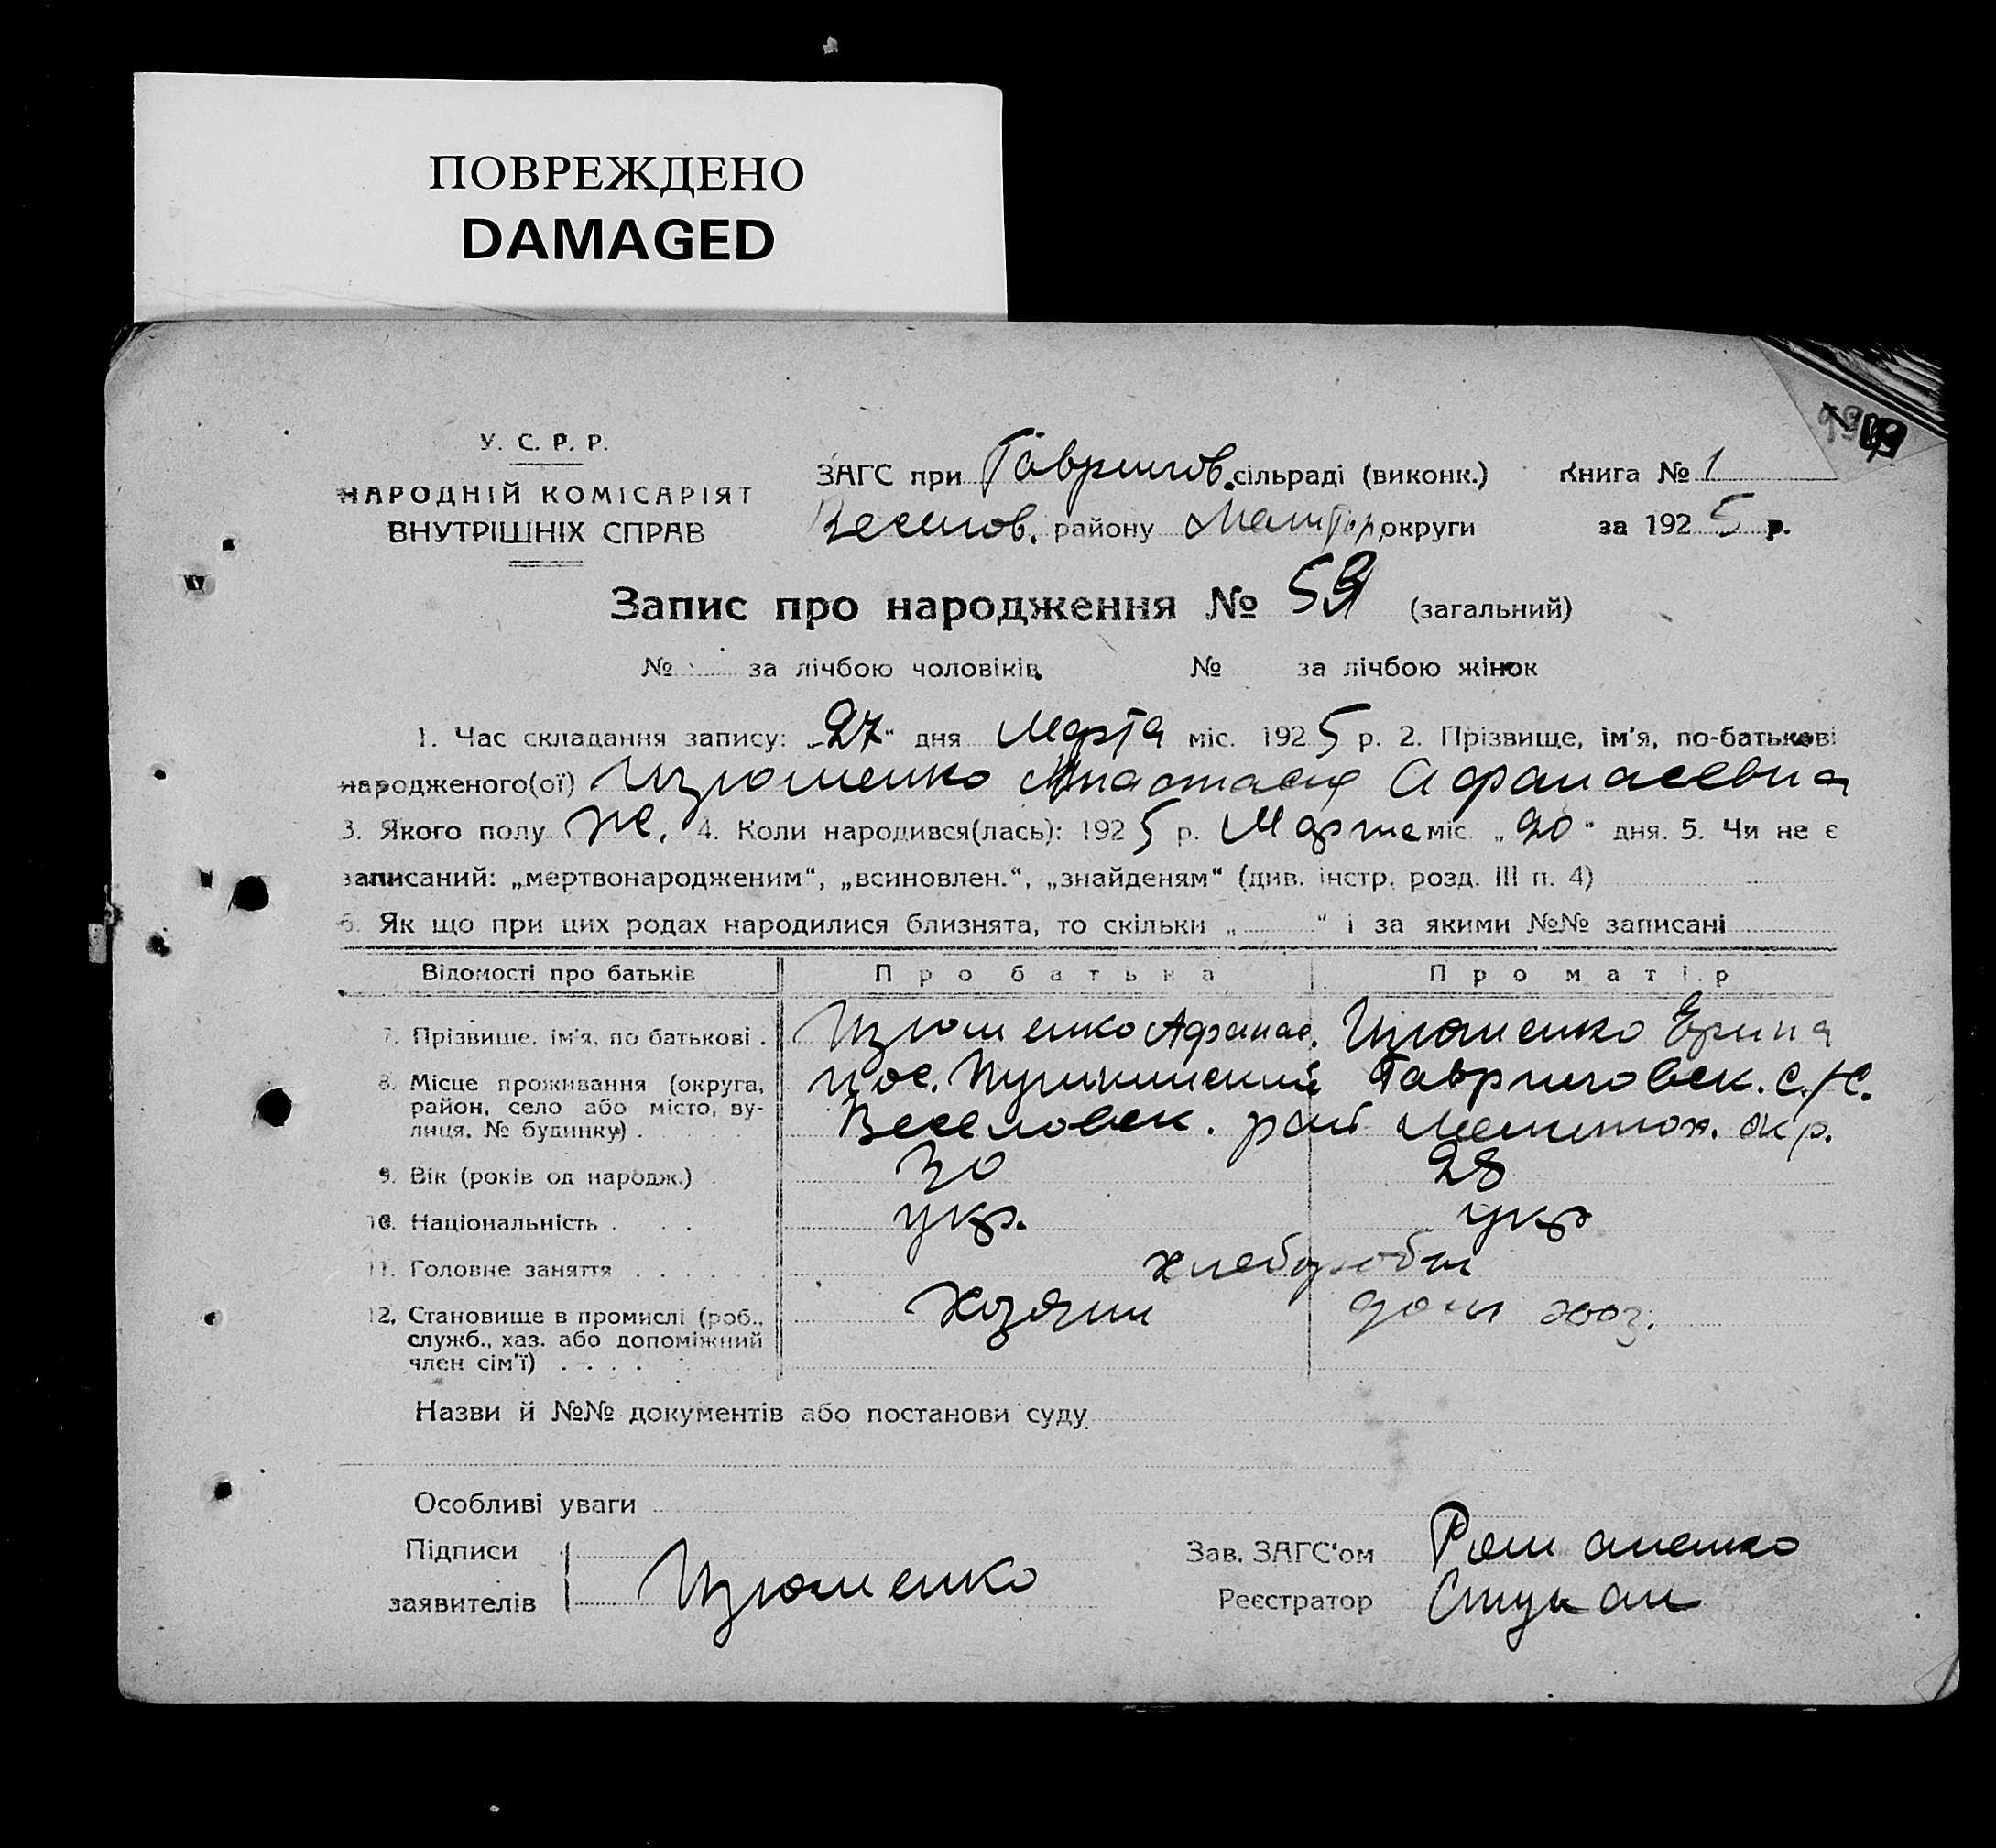 ПОВРЕЖДЕНО
DAMAGED
У. С. Р. Р.
НАРОДНІЙ КОМІСАРІЯТ
ВНУТРІШНІХ СПРАВ
ЗАГС при Гаврилов. сільраді (виконк.) Книга № 1
Веселов. району Мелитоп. округи за 1925 р.
Запис про народження № 59 (загальний)
№ за лічбою чоловіків № за лічбою жінок
1. Час складання запису: „27“ дня Марта міс. 1925 р. 2. Прізвище, ім'я, по-батькові
народженого(ої) Изюменко Анастасия Афанасевна
3. Якого полу же. 4. Коли народився(лась): 1925 р. Марта міс. „20“ дня. 5. Чи не є
записаний: „мертвонародженим“, „всиновлен.“, „знайденям“ (див. інстр. розд. III п. 4)
6. Як що при цих родах народилися близнята, то скільки „ “ і за якими №№ записані
Відомості про батьків Про батька Про матір
7. Прізвище, ім'я, по батькові . Изюменко Афанас. Изюменко Ерина
8. Місце проживання (округа, район, село або місто, вулиця, № будинку) . пос. Пушкинский Гавриловск. с/с.
Веселовск. рай Мелитоп. окр.
9. Вік (років од народж.) . 30 28
10. Національність . . . укр. укр
11. Головне заняття . . . . . хлеборобы
12. Становище в промислі (роб., Хозяин дом хоз.
служб., хаз. або допоміжний
член сім'ї) . . . .
Назви й №№ документів або постанови суду
Особливі уваги
Підписи Зав. ЗАГС'ом Романенко
заявителів Изюменко Реєстратор Стукан